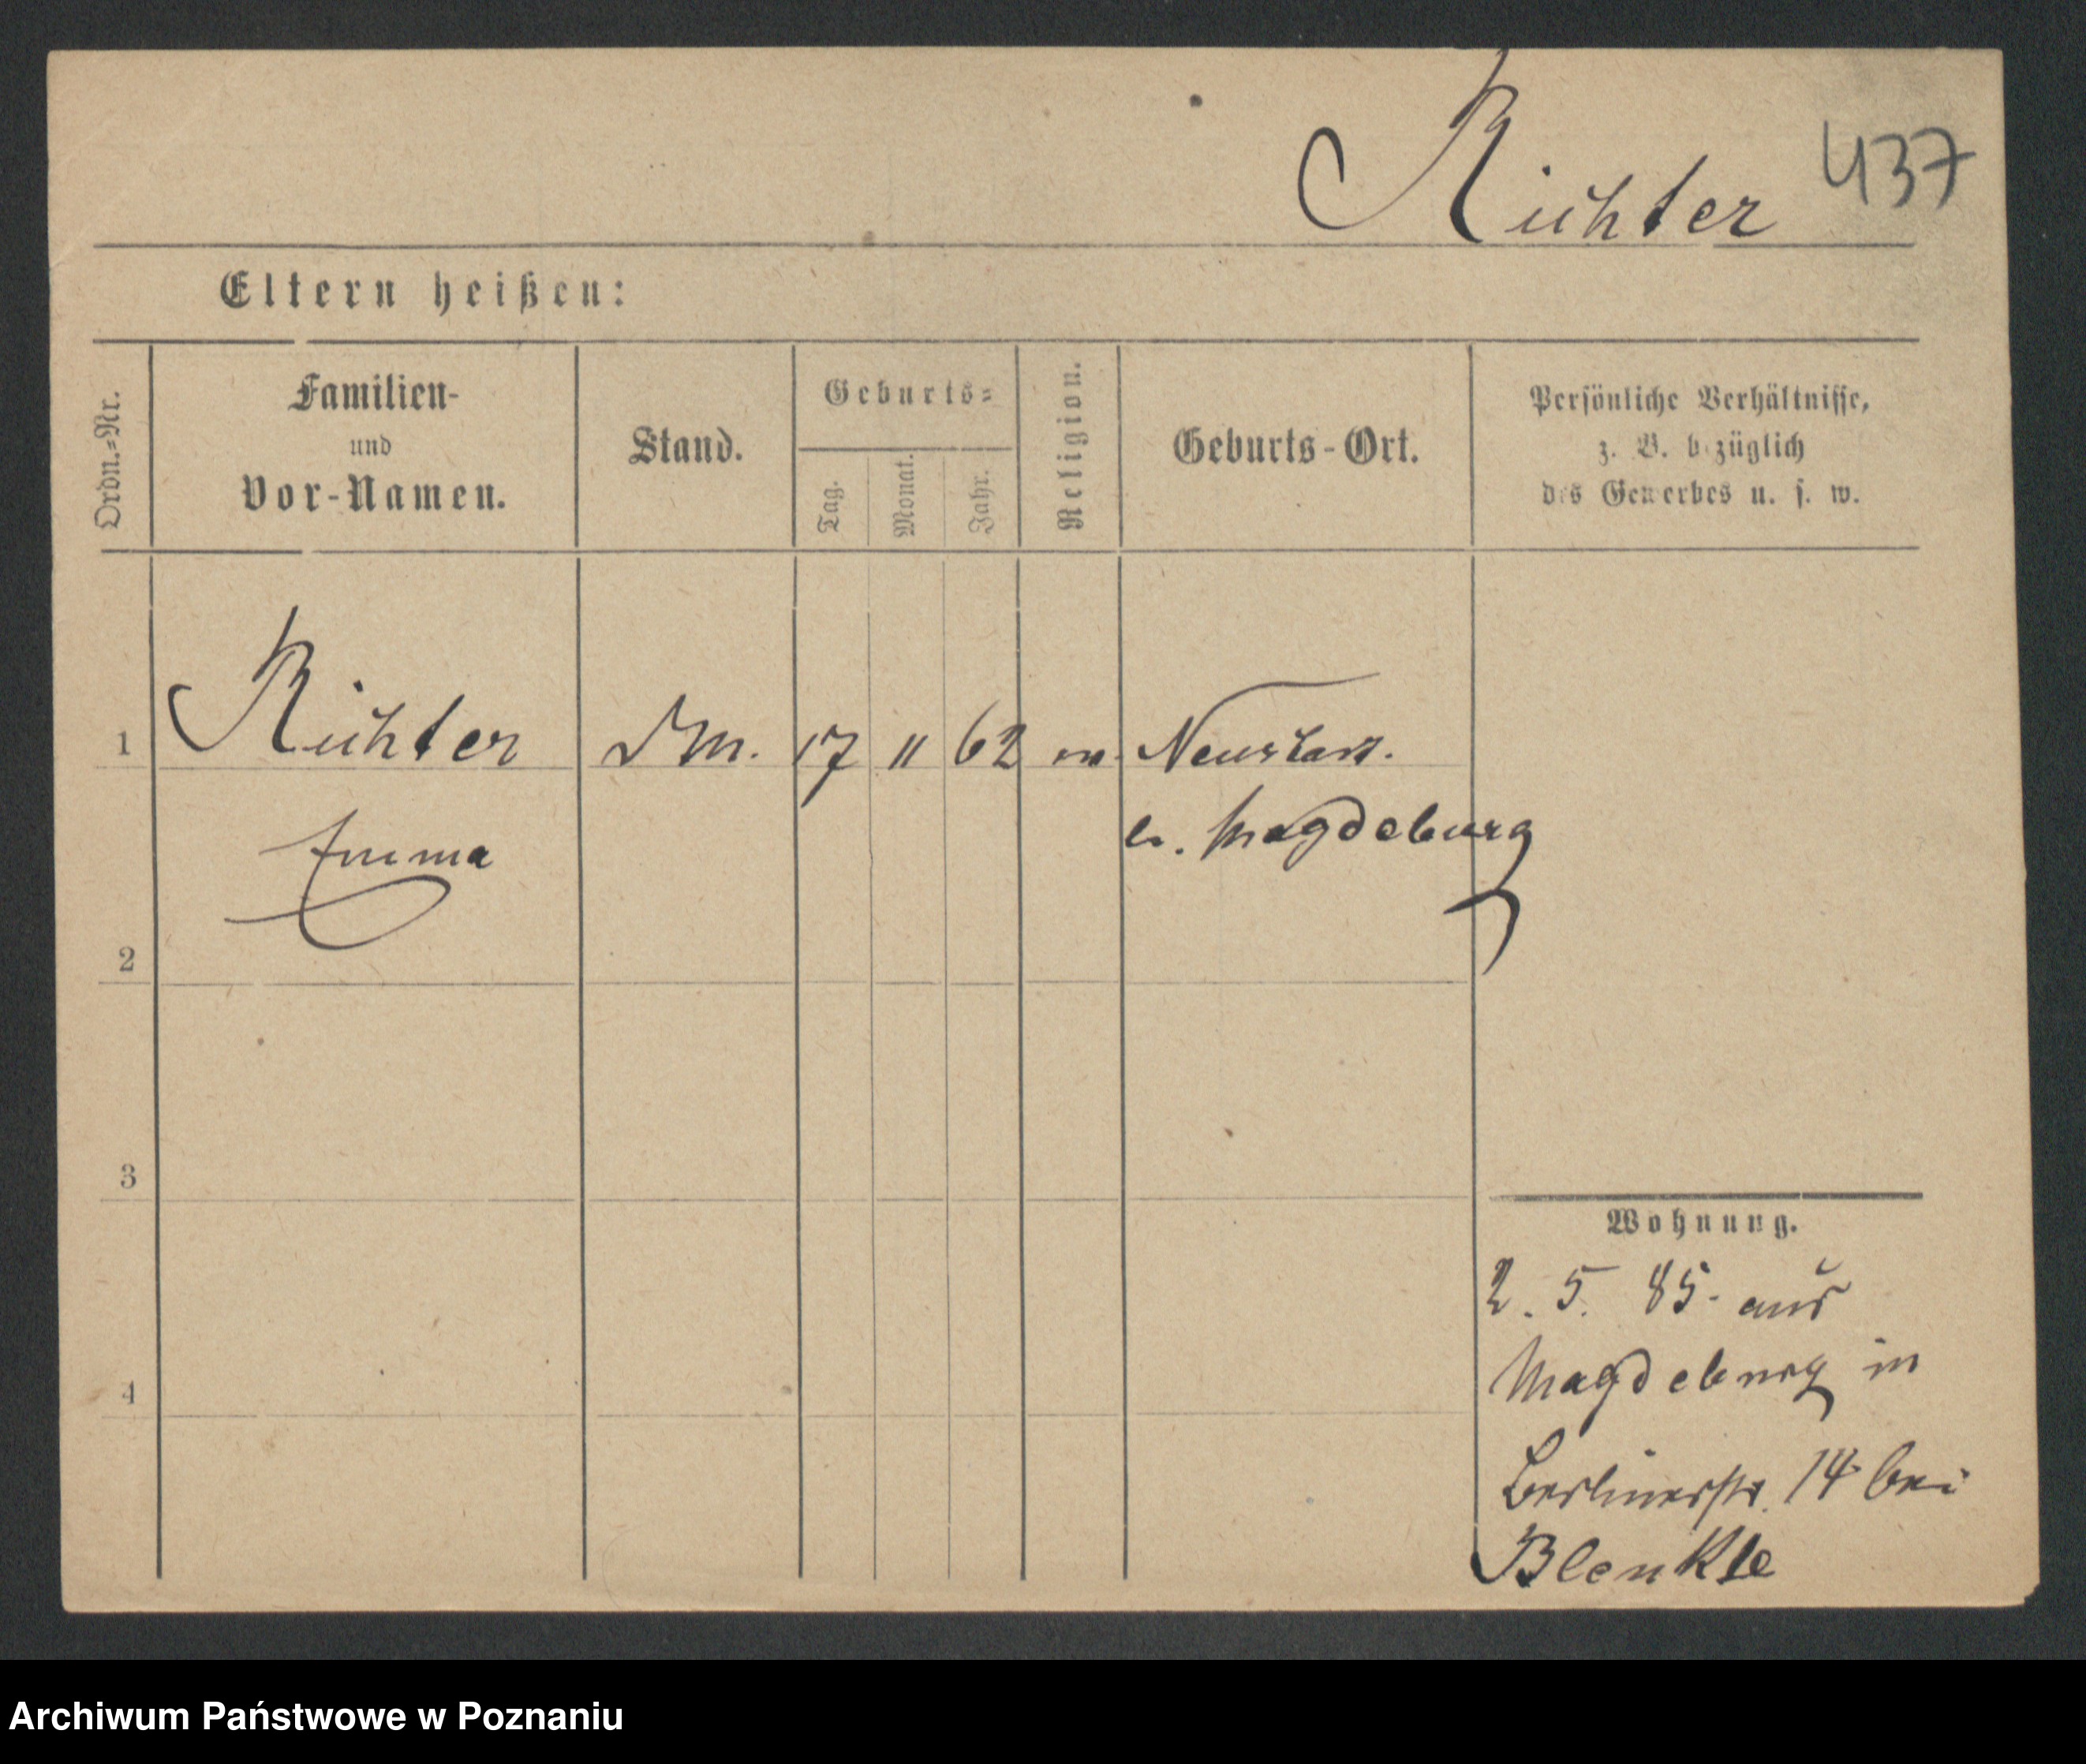 Richter 437
Eltern heißen:
Ordn.=Nr.
Familien-
und
Vor-Namen.
Stand.
Geburts=
Tag.
Monat.
Jahr.
Religion.
Geburts-Ort.
Persönliche Verhältnisse,
z. B. bezüglich
des Gewerbes u. s. w.
1 Richter DM. 17 11 62 Neustadt.
Emma b. Magdeburg
2
3
Wohnung.
2. 5. 85. aus
Magdeburg in
4
Berlinerstr. 14 bei
Blenkle
Archiwum Państwowe w Poznaniu